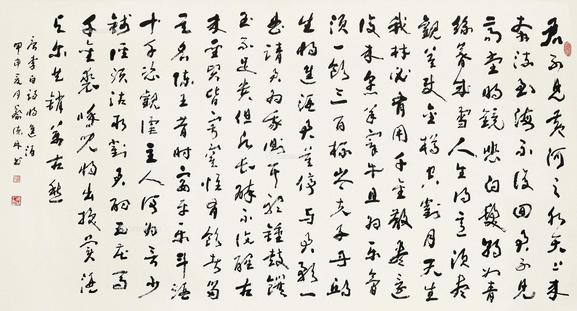 君不見黃河之水天上來
奔流到海不復回君不見
高堂明鏡悲白髮朝如青
絲暮成雪人生得意須盡
歡莫使金樽空對月天生
我材必有用千金散盡還
復來烹羊宰牛且為樂會
須一飲三百杯岑夫子丹丘
生將進酒君莫停與君歌一
曲請君為我傾耳聽鐘鼓饌
玉不足貴但願長醉不復醒古
來聖賢皆寂寞惟有飲者留
其名陳王昔時宴平樂斗酒
十千恣歡謔主人何為言少
錢徑須沽取對君酌五花馬
千金裘呼兒將出換美酒
與爾同銷萬古愁
唐李白詩將進酒
甲申夏月